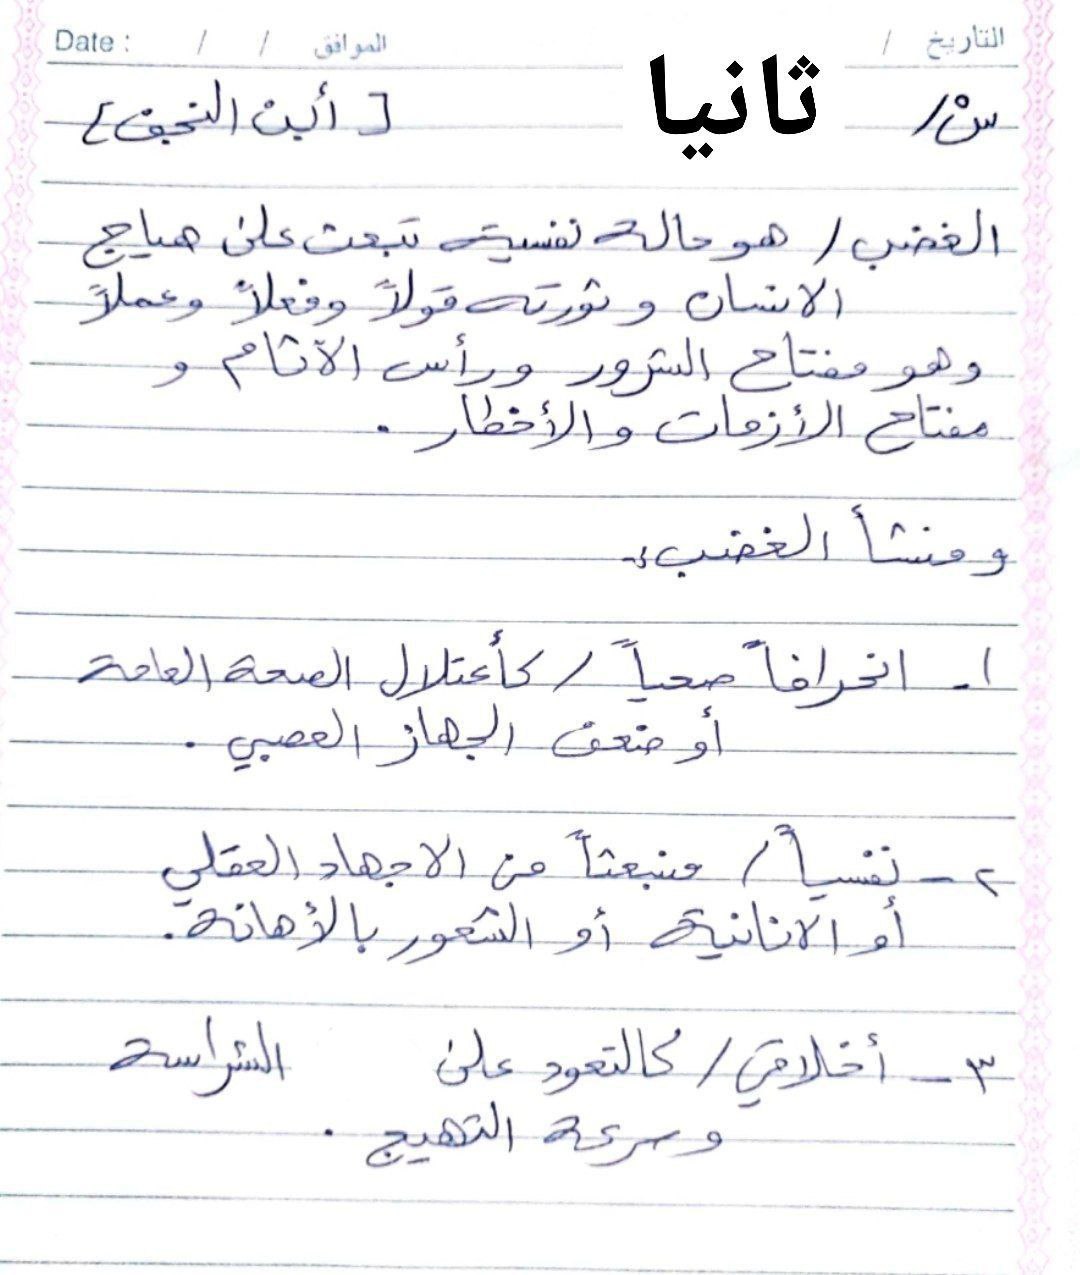 Date : / / الموافق / التاريخ
س/ ثانيا [أبن النجف]
الغضب / هو حالة نفسية تبعث على هياج
الانسان وثورته قولاً وفعلاً وعملاً
وهو مفتاح الشرور ورأس الآثام و
مفتاح الأزمات والأخطار .
ومنشأ الغضب :-
١- انحرافاً صحياً / كأعتلال الصحة العامة
أو ضعف الجهاز العصبي .
٢- نفسياً / منبعثاً من الاجهاد العقلي
أو الانانية أو الشعور بالأهانة .
٣- أخلاقي / كالتعود على الشراسة
وسرعة التهيج .